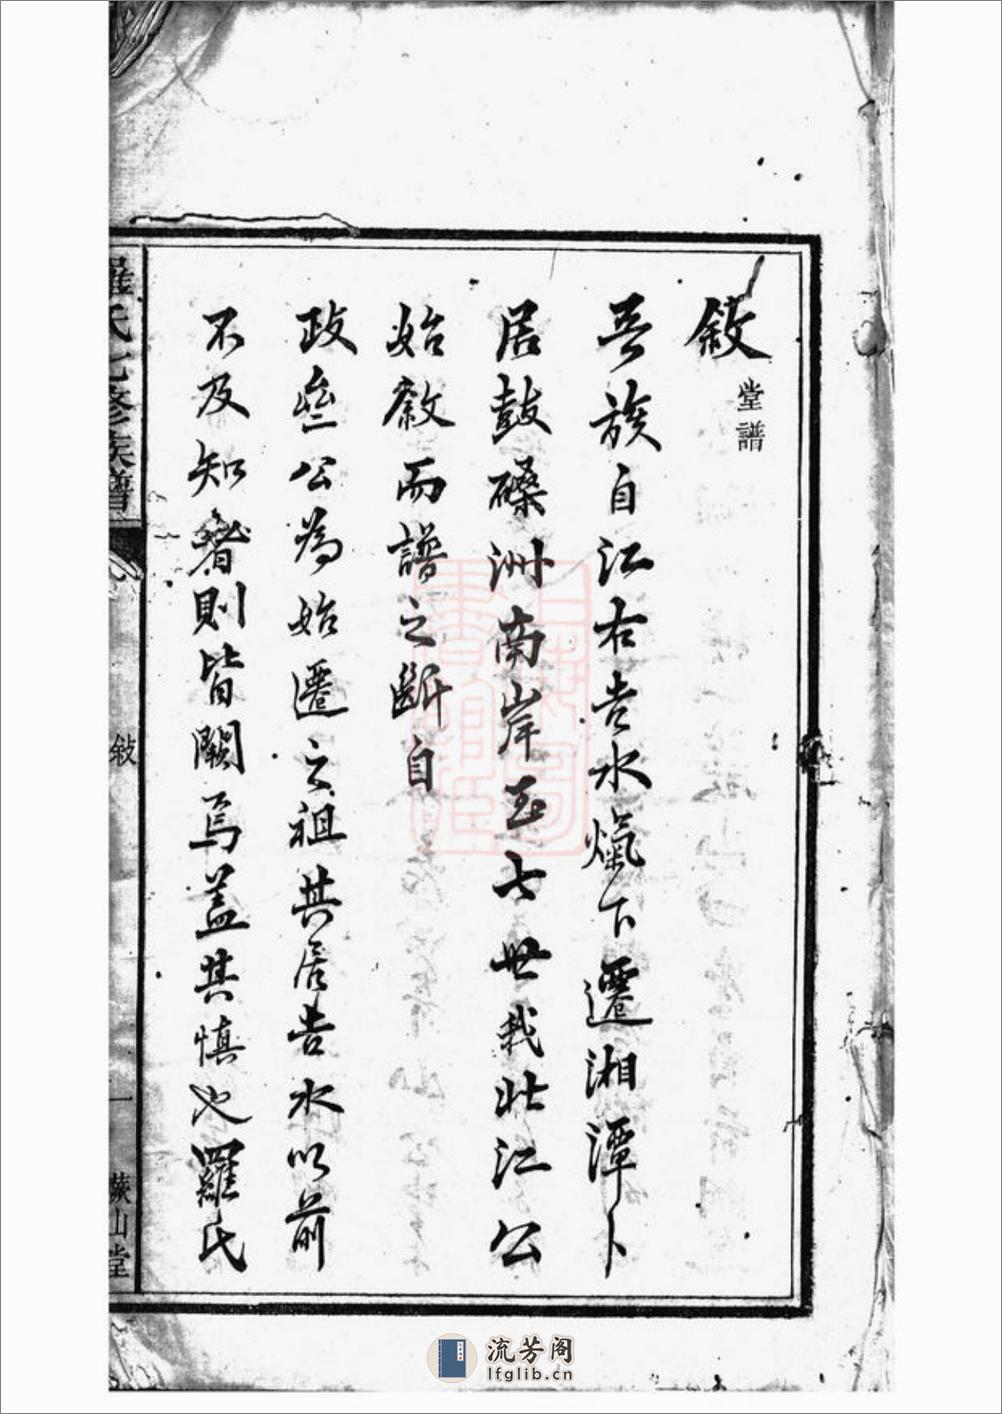 敘
堂譜
吾族自江右吉水爋下遷湘潭卜
居鼓磉洲南岸至七世我北江公
始敘而譜之斷自
政叄公為始遷之祖其居吉水以前
不及知者則皆闕焉蓋其慎也羅氏
羅氏七修族譜
敘
一
蕨山堂
流芳阁
lfglib.cn